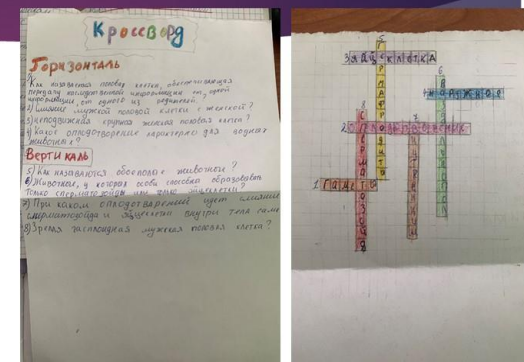 Кроссворд
Горизонталь
1) Как называется половая клетка, обеспечивающая
передачу наследственной информации от одной
информации, от одного из родителей?
2) Слияние мужской половой клетки с женской?
3) неподвижная крупная женская половая клетка?
4) Какое оплодотворение характерно для водных
животных?
Вертикаль
5) Как называются обоеполые животные?
6) Животные, у которых особи способны образовывать
только сперматозоиды или только яйцеклетки?
7) При каком оплодотворении идет слияние
сперматозоида и яйцеклетки внутри тела самки
8) Зрелая гаплоидная мужская половая клетка?
5
3 яйцеклетка
6
4 наружное
8
7
2 оплодотворение
1 Гамета
гермафродиты
сперматозоид